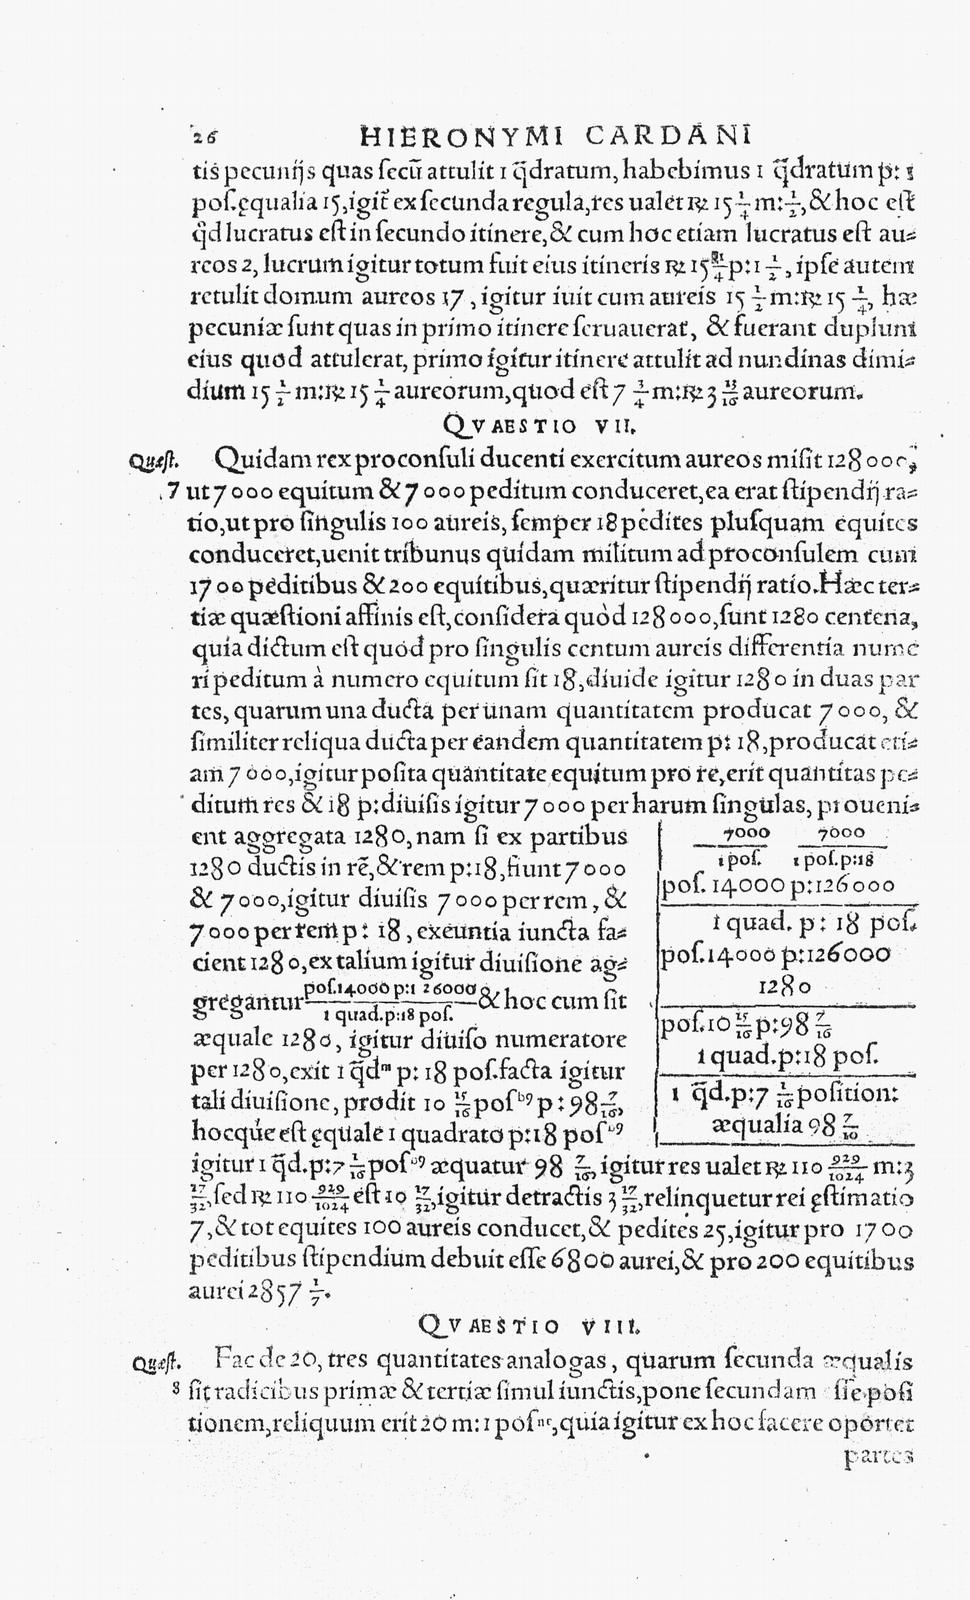 26 HIERONYMI CARDANI
tis pecunijs quas secũ attulit 1 q̃dratum, habebimus 1 q̃dratum p: 1
pos. ęqualia 15, igit̃ ex secunda regula, res ualet ℞ 15 1/4 m: 1/2, & hoc est
q̃d lucratus est in secundo itinere, & cum hoc etiam lucratus est au⸗
reos 2, lucrum igitur totum fuit eius itineris ℞ 15 1/4 p: 1 1/2, ipse autem
retulit domum aureos 17, igitur iuit cum aureis 15 1/2 m: ℞ 15 1/4, hæ
pecuniæ sunt quas in primo itinere seruauerat, & fuerant duplum
eius quod attulerat, primo igitur itinere attulit ad nundinas dimi⸗
dium 15 1/2 m: ℞ 15 1/4 aureorum, quod est 7 3/4 m: ℞ 3 13/16 aureorum.
QVAESTIO VII.
Quæst. Quidam rex proconsuli ducenti exercitum aureos misit 128000,
7 ut 7000 equitum & 7000 peditum conduceret, ea erat stipendij ra⸗
tio, ut pro singulis 100 aureis, semper 18 pedites plusquam equites
conduceret, uenit tribunus quidam militum ad proconsulem cum
1700 peditibus & 200 equitibus, quæritur stipendij ratio. Hæc ter⸗
tiæ quæstioni affinis est, considera quòd 128000, sunt 1280 centena,
quia dictum est quod pro singulis centum aureis differentia nume
ri peditum à numero equitum sit 18, diuide igitur 1280 in duas par
tes, quarum una ducta per unam quantitatem producat 7000, &
similiter reliqua ducta per eandem quantitatem p: 18, producat eti⸗
am 7000, igitur posita quantitate equitum pro re, erit quantitas pe⸗
ditum res & 18 p: diuisis igitur 7000 per harum singulas, proueni⸗
ent aggregata 1280, nam si ex partibus
1280 ductis in rē, & rem p: 18, fiunt 7000
& 7000, igitur diuisis 7000 per rem, &
7000 per rem p: 18, exeuntia iuncta fa⸗
cient 1280, ex talium igitur diuisione ag⸗
gregantur pos. 14000 p: 126000 / 1 quad. p: 18 pos. & hoc cum sit
æquale 1280, igitur diuiso numeratore
per 1280, exit 1 q̃dᵐ p: 18 pos. facta igitur
tali diuisione, prodit 10 15/16 posᵇ⁹ p: 98 7/16,
hocque est ęquale 1 quadrato p: 18 posᵇ⁹
7000 7000
1 pos. 1 pos. p: 18
pos. 14000 p: 126000
1 quad. p: 18 pos.
pos. 14000 p: 126000
1280
pos. 10 15/16 p: 98 7/16
1 quad. p: 18 pos.
1 q̃d. p: 7 1/16 position:
æqualia 98 7/10
igitur 1 q̃d. p: 7 1/16 posᵇ⁹ æquatur 98 7/16, igitur res ualet ℞ 110 929/1024 m: 3
17/32, sed ℞ 110 929/1024 est 10 17/32, igitur detractis 3 17/32, relinquetur rei ęstimatio
7, & tot equites 100 aureis conducet, & pedites 25, igitur pro 1700
peditibus stipendium debuit esse 6800 aurei, & pro 200 equitibus
aurei 2857 1/7.
QVAESTIO VIII.
Quæst. Fac de 20, tres quantitates analogas, quarum secunda æqualis
8 sit radicibus primæ & tertiæ simul iunctis, pone secundam sse posi
tionem, reliquum erit 20 m: 1 posⁿᵉ, quia igitur ex hoc facere oportet
partes